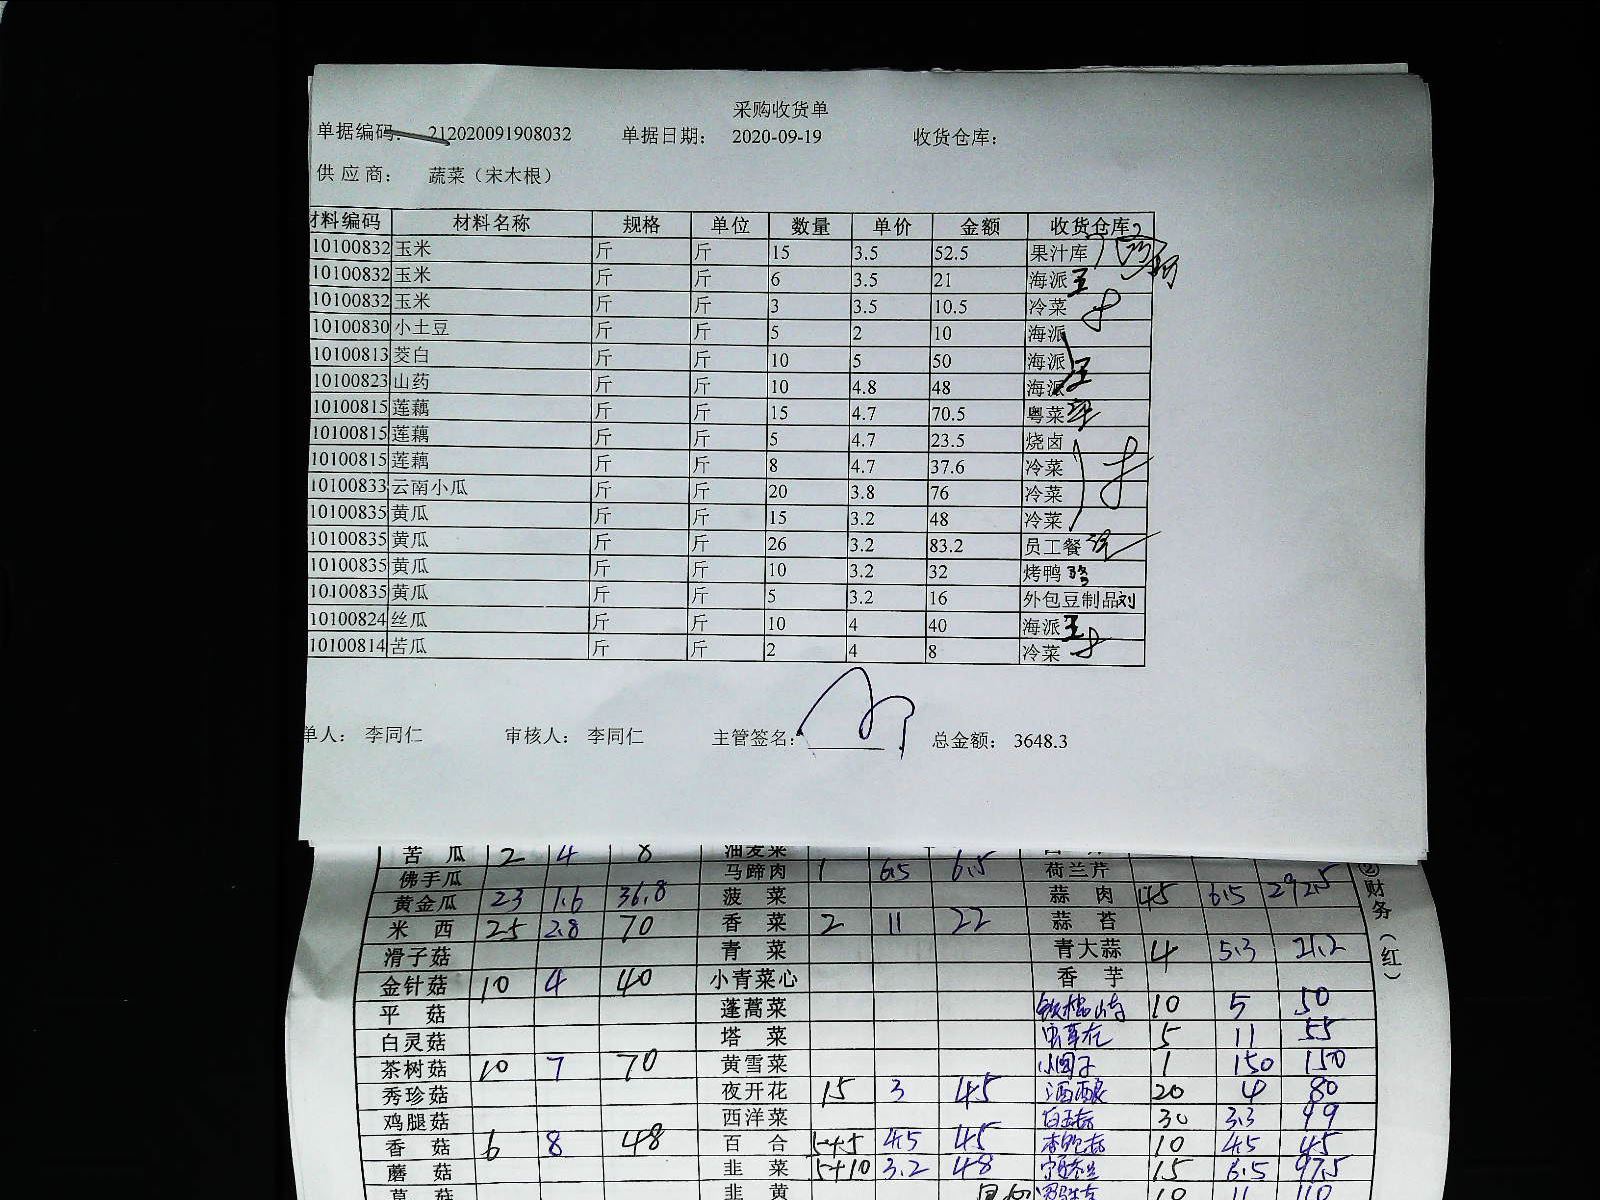 采购收货单
单据编码： 212020091908032 单据日期： 2020-09-19 收货仓库：
供应商： 蔬菜（宋木根）
材料编码 材料名称 规格 单位 数量 单价 金额 收货仓库
10100832 玉米 斤 斤 15 3.5 52.5 果汁库
10100832 玉米 斤 斤 6 3.5 21 海派 王
10100832 玉米 斤 斤 3 3.5 10.5 冷菜
10100830 小土豆 斤 斤 5 2 10 海派
10100813 茭白 斤 斤 10 5 50 海派
10100823 山药 斤 斤 10 4.8 48 海派 王
10100815 莲藕 斤 斤 15 4.7 70.5 粤菜
10100815 莲藕 斤 斤 5 4.7 23.5 烧卤
10100815 莲藕 斤 斤 8 4.7 37.6 冷菜
10100833 云南小瓜 斤 斤 20 3.8 76 冷菜
10100835 黄瓜 斤 斤 15 3.2 48 冷菜
10100835 黄瓜 斤 斤 26 3.2 83.2 员工餐
10100835 黄瓜 斤 斤 10 3.2 32 烤鸭
10100835 黄瓜 斤 斤 5 3.2 16 外包豆制品 刘
10100824 丝瓜 斤 斤 10 4 40 海派 王
10100814 苦瓜 斤 斤 2 4 8 冷菜
单人： 李同仁 审核人： 李同仁 主管签名： 总金额： 3648.3
苦瓜 2 4 8 油麦菜
佛手瓜 马蹄肉 1 6.5 6.5 荷兰芹
黄金瓜 23 1.6 36.8 菠菜 蒜肉 45 6.5 292.5
米西 25 2.8 70 香菜 2 11 22 蒜苔
滑子菇 青菜 青大蒜 4 5.3 21.2
金针菇 10 4 40 小青菜心 香芋
平菇 蓬蒿菜 铁棍山药 10 5 50
白灵菇 塔菜 虫草花 5 11 55
茶树菇 10 7 70 黄雪菜 小圆子 1 150 150
秀珍菇 夜开花 15 3 45 酒酿 20 4 80
鸡腿菇 西洋菜 白玉菇 30 3.3 99
香菇 6 8 48 百合 5+5 4.5 45 杏鲍菇 10 4.5 45
蘑菇 韭菜 5+10 3.2 48 15 6.5 97.5
韭黄 10 11 110
②财务（红）